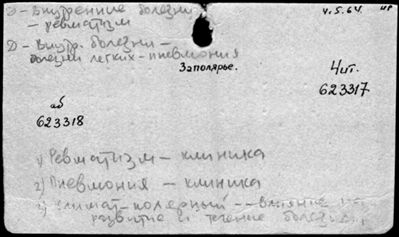 Э - Внутренние болезни 4.5.64.
- ревматизм
Д - Внутр. болезни -
болезни легких - пневмония
Заполярье.
Чит.
623317
аб
623318
1) Ревматизм - клиника
2) Пневмония - клиника
3) Климат - полярный -- влияние на
развитие и течение болезни.